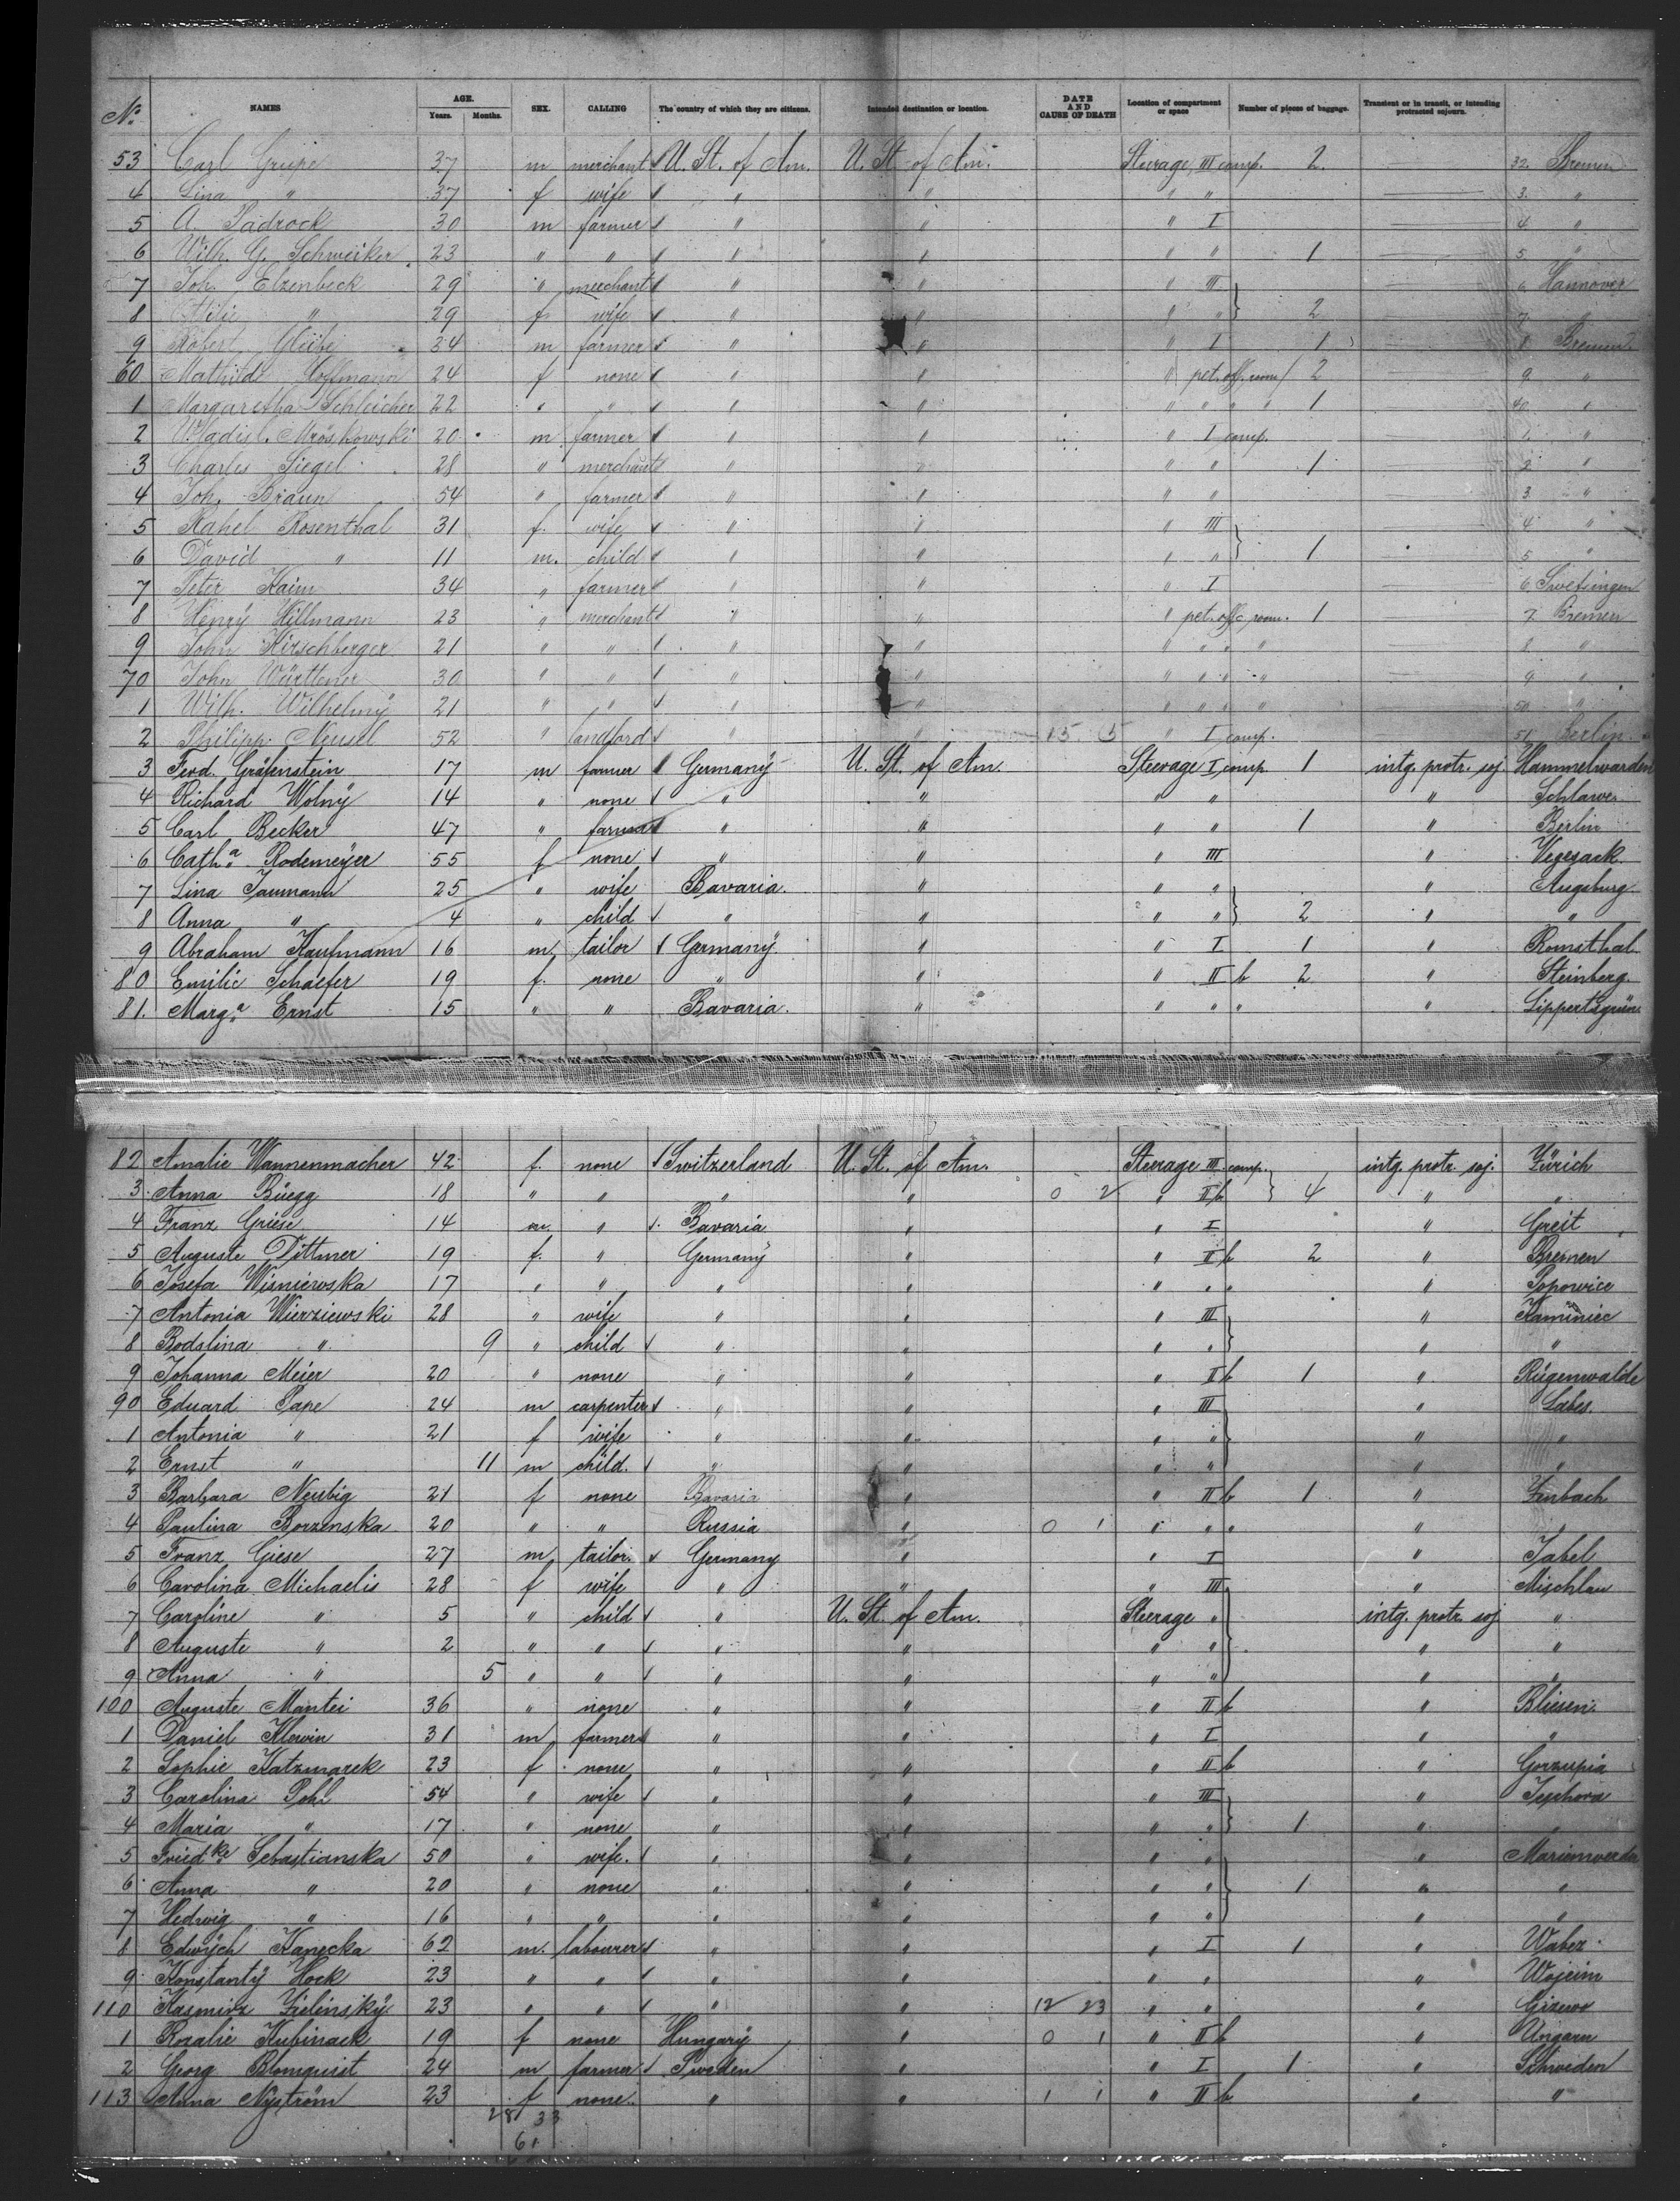 No. NAMES AGE. Years. Months. SEX. CALLING The country of which they are citizens. Intended destination or location. DATE AND CAUSE OF DEATH Location of compartment or space Number of pieces of baggage. Transient or in transit, or intending protracted sojourn.
53 Carl Griepe 37 m merchant U. St. of Am. U. St. of Am. Steerage III comp. 2 — 32. Bremen
4 Lina " 37 f wife " " " " — 3. "
5 A. Padrock 30 m farmer " " " I — 4 "
6 Wilh. G. Schweiker 23 " " " " " " 1 — 5 "
7 Joh. Elzenbeck 29 " merchant " " " III — 6 Hannover
8 Ottilie " 29 f wife " " " " 2 — 7 "
9 Robert 34 m farmer " " " I 1 — 8 Bremen
60 Mathilde Hoffmann 24 f none " " " pet. off. room 2 — 9 "
1 Margaretha Schleicher 22 " " " " " " " " 1 — 40 "
2 Wladisl. Mroskowski 20 m farmer " " " I comp. — 1. "
3 Charles Siegel 28 " merchant " " " " 1 — 2 "
4 Joh. Braun 54 " farmer " " " " — 3 "
5 Rahel Rosenthal 31 f. wife " " " III — 4 "
6 David " 11 m. child " " " " 1 — 5 "
7 Peter Kaim 34 " farmer " " " I — 6 Swetsingen
8 Henry Hillmann 23 " merchant " " " pet. offc. room. 1 — 7. Bremen
9 John Hirschberger 21 " " " " " " " " — 8 "
70 John Württener 30 " " " " " " " " — 9 "
1 Wilh. Wilhelmy 21 " " " " " " " " — 50 "
2 Philipp Neusel 52 " landlord " " 15 5 " I comp. — 51. Berlin
3 Ferd. Gräfenstein 17 m farmer Germany U. St. of Am. Steerage I comp. 1 intg. protr. soj. Hammelwarden
4 Richard Wolny 14 " none " " " " " Schlawe
5 Carl Becker 47 " farmer " " " " 1 " Berlin
6 Catha. Rodemeyer 55 f none " " " III " Vegesack
7 Lina Taumann 25 " wife Bavaria. " " " " Augsburg
8 Anna " 4 " child " " " " 2 " "
9 Abraham Kaufmann 16 m tailor Germany " " I 1 " Romsthal
80 Emilie Schaefer 19 f. none " " " II b 2 " Steinberg.
81. Marga. Ernst 15 " " Bavaria. " " " " " Lippertsgrün
82 Amalie Wannenmacher 42 f. none Switzerland U. St. of Am. Steerage III comp. intg. protr. soj. Zürich
3 Anna Rüegg 18 " " " " 0 2 " II b 4 " "
4 Franz Griese 14 m. " Bavaria " " I " Greit
5 Auguste Dittmer 19 f. " Germany " " II b 2 " Bremen
6 Josefa Wisniewska 17 " " " " " " " " Popowice
7 Antonia Wierziewski 28 " wife " " " III " Kaminiec
8 Bodslina " 9 " child " " " " " "
9 Johanna Meier 20 " none " " " II b 1 " Rügenwalde
90 Eduard Pape 24 m carpenter " " " III " Labes.
1 Antonia " 21 f wife " " " " " "
2 Ernst " 11 m child. " " " " " "
3 Barbara Neubig 21 f none Bavaria " " II b 1 " Zinbach
4 Paulina Borzenska 20 " " Russia " 0 1 " " " " "
5 Franz Giese 27 m tailor. Germany " " I " Jabel
6 Carolina Michaelis 28 f wife " " " III " Mischlau
7 Caroline " 5 " child " U. St. of Am. Steerage " intg. protr. soj "
8 Auguste " 2 " " " " " " " "
9 Anna " 5 " " " " " " " "
100 Auguste Mantei 36 " none " " " II b " Bliesen.
1 Daniel Klewin 31 m farmer " " " I " "
2 Sophie Katzmarek 23 f none " " " II b " Gorzupia
3 Carolina Pohl 54 " wife " " " III " Tzschora
4 Maria " 17 " none " " " " 1 " "
5 Friedke Sebastianska 50 " wife. " " " " " Marienwerder
6 Anna " 20 " none " " " " 1 " "
7 Hedwig " 16 " " " " " " " "
8 Edwych Kanecka 62 m. labourer " " " I 1 " Wabez
9 Konstanty Hock 23 " " " " " " " Wojcim
110 Kasmirz Zielinsky 23 " " " " 12 23 " " " Gizewo
1 Rozalie Kubinack 19 f none Hungary " 0 1 " II b " Ungarn
2 Georg Blomquist 24 m farmer Sweden " " I 1 " Schweden
113 Anna Nyström 23 f none " " 1 1 " II b " "
28 33
61